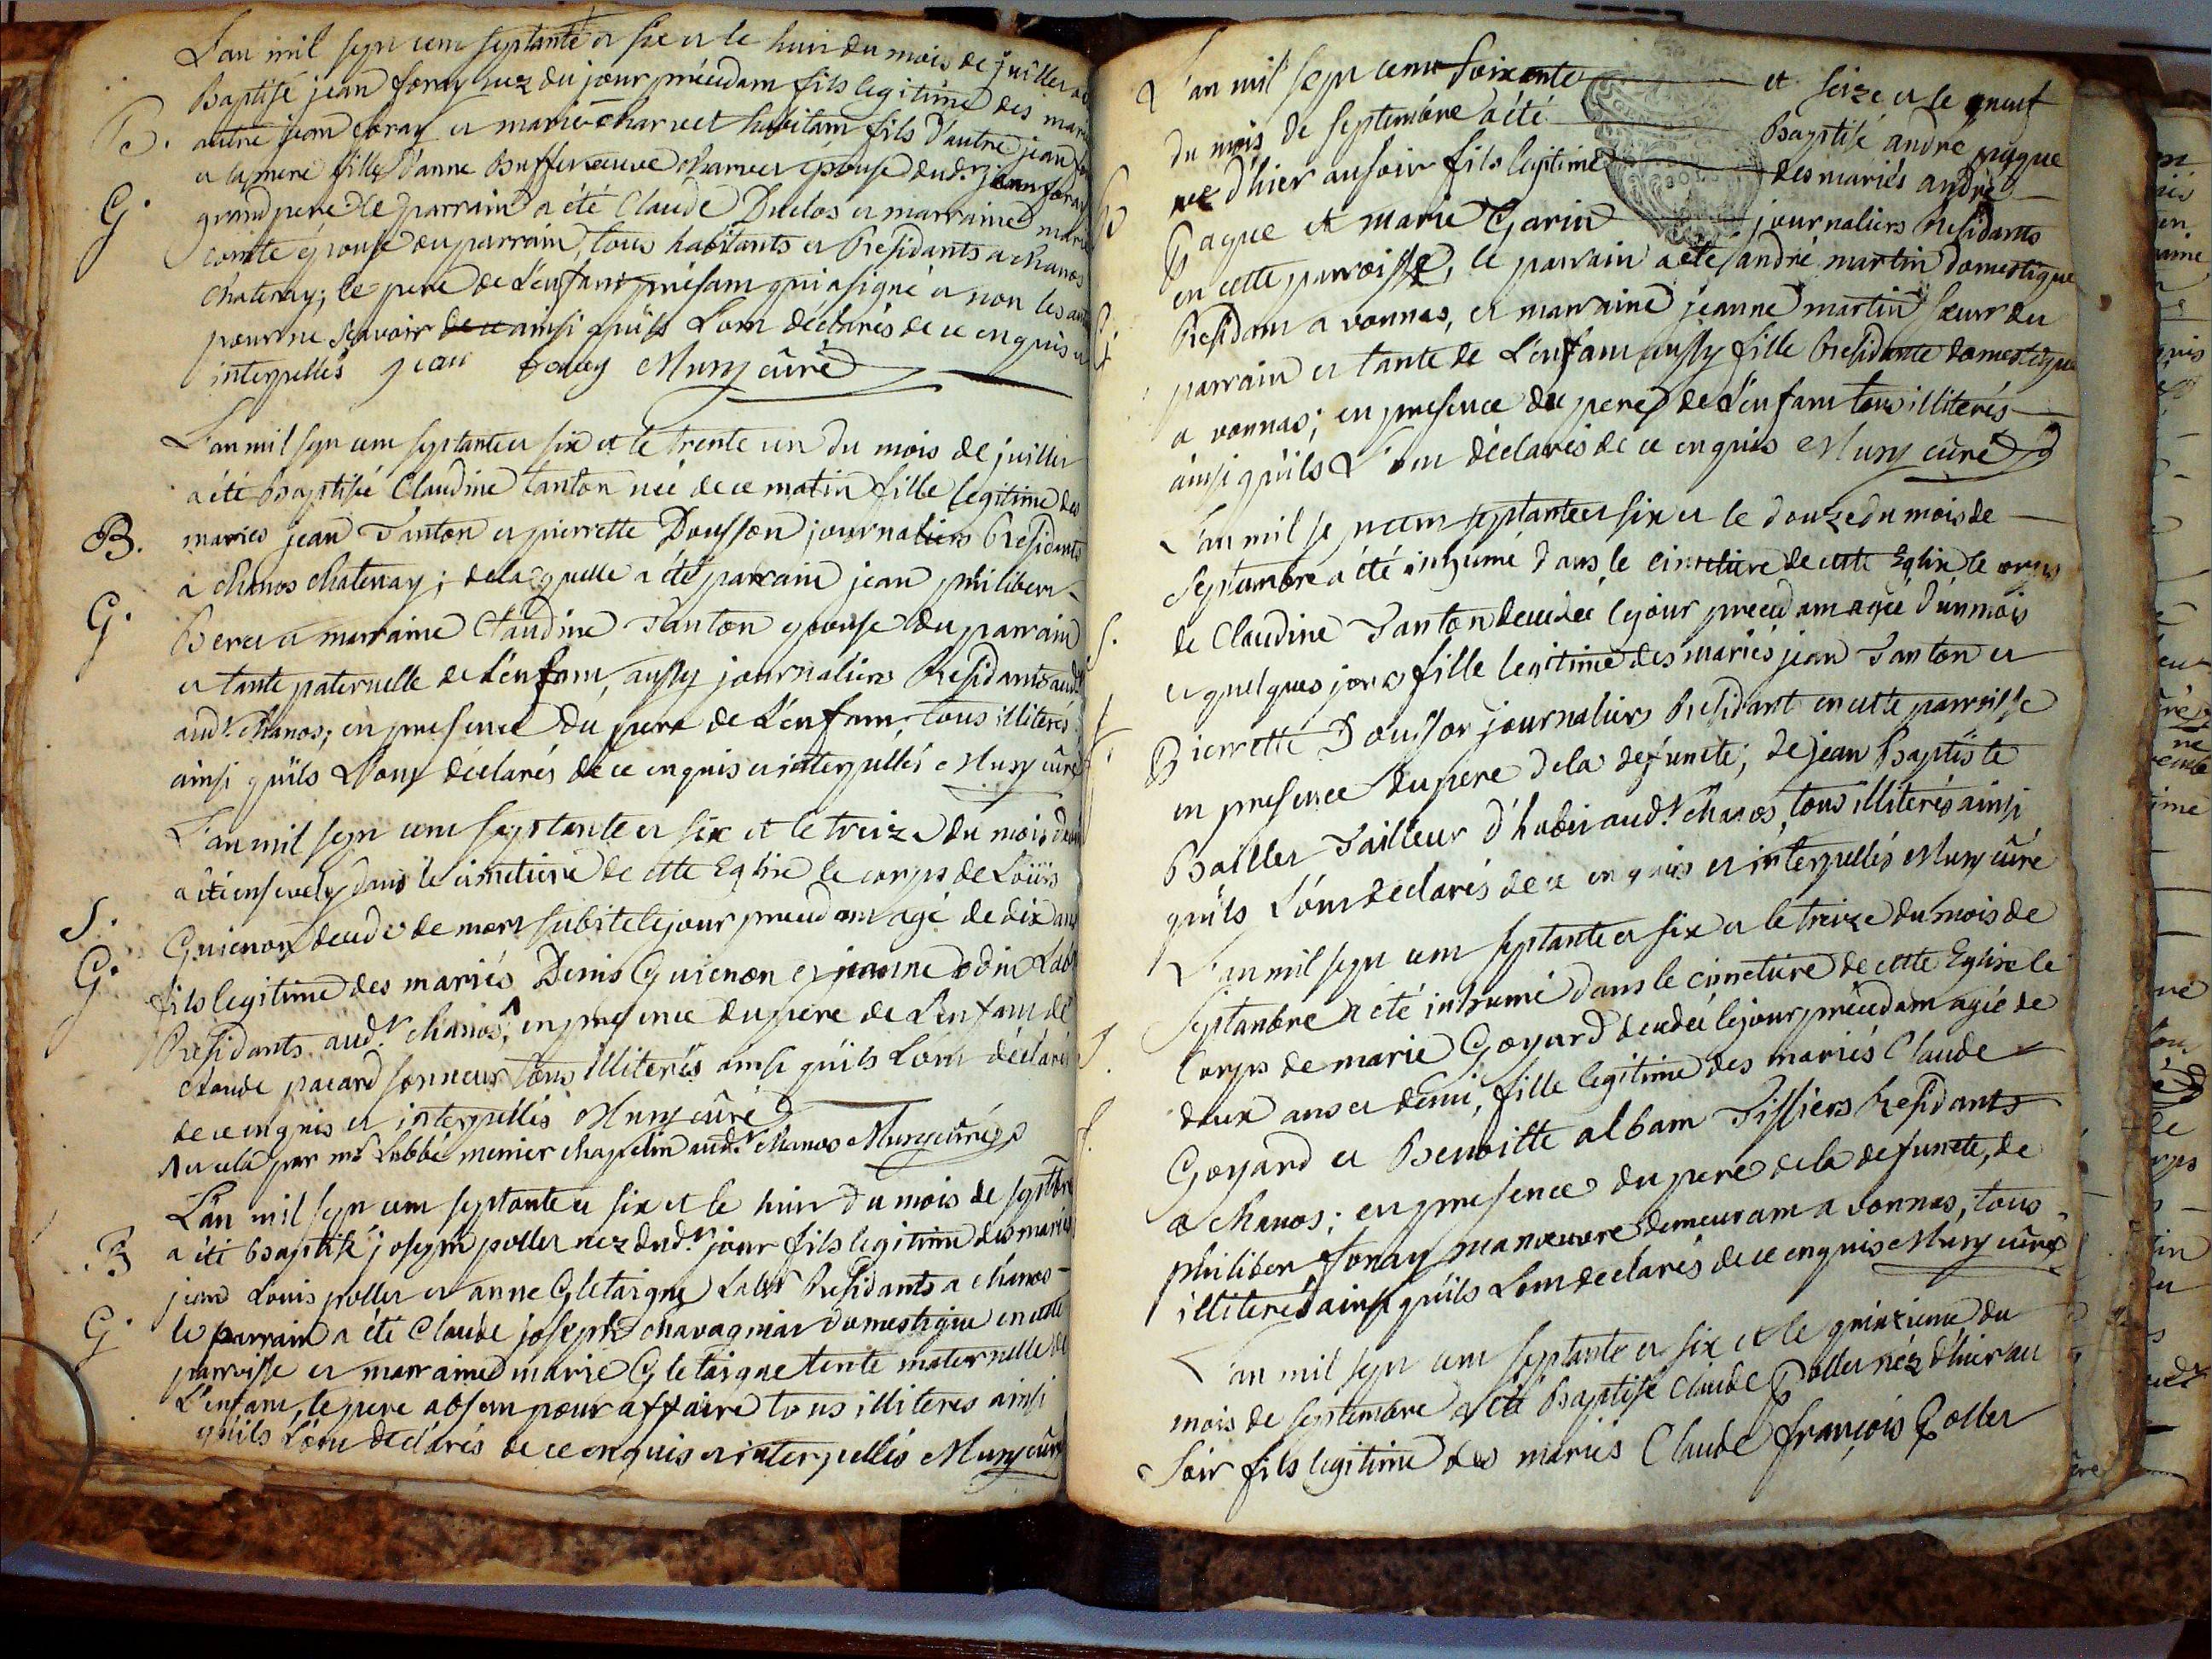 L'an mil sept cent septante et six et le huit du mois de juillet a
Baptisé jean foray nez du jour précédam fils legitime des
B. autre jean foray et marie charvet habitam fils d'autre jean
et la mere fille d'anne Buffet veuve charvet épouse dud.t jean foray
G. grandpere le parrain a été Claude Duclos et marraine
comte épouse du parrain, tous habitants et Residants a chanos
chatenay; le pere de L'enfant présam qui a signé et non les
pour ne scavoir de ce ainsi qu'ils L'om déclarés de ce enquis et
interpellés jean foray Mury curé
L'an mil sept cem septante et six et le trente un du mois de juillet
a été Baptisée Claudine tanton née de ce matin fille legitime des
B. mariés jean Tanton et pierrette Dousson journaliers Residants
a chanos chatenay; de laquelle a été parrain jean philibert
G. Beret et marraine Claudine Tanton epouse du parrain
et tante paternelle de L'enfam, aussy journaliers Residants
aud.t chanos; en presence du pere de L'enfam, tous illiterés
ainsi qu'ils L'om déclarés de ce enquis et interpellés Mury curé
L'an mil sept cem septante et six et le treize du mois
a été ensevely dans le cimetiere de cette Eglise le corps de Loüis
S. Guienon decedé de mort subite le jour precedam agé de dix ans
G. fils legitime des mariés Denis Guienon et jeanne odin
Residants aud.t chanos; en presence du pere de L'enfam de
claude pacard sonneur tous illiterés ainsi qu'ils L'om déclarés
de ce enquis et interpellés Mury curé
et cela par mr. L'abbé menier chapelin aud.t chanos Mury curé
L'an mil sept cem septante et six et le huit du mois de septbre
B a été Baptisé joseph pollet nez dud.t jour fils legitime des mariés
jean Louis pollet et anne Gletaigne Labr Residants a chanos
G. le parrain a été Claude joseph chavagniat domestique en cette
parroisse et marraine marie Gletaigne tente maternelle de
L'enfant, le pere absem pour affaire tous illiteres ainsi
qu'ils L'om déclarés de ce enquis et interpellés Mury curé
L'an mil sept cent soixante et seize et le neuf
du mois de septembre a été Baptisé andré paque
B nez d'hier au soir fils legitime des mariés andré
Paque et marie Garin journaliers Residants
en cette parroisse, le parrain a été andré martin domestique
G. Residam a vonnas, et marraine jeanne martin soeur du
parrain et tante de L'enfam aussy fille Residante domestique
a vonnas; en presence du pere de L'enfam tous illiterés
ainsi qu'ils L'om déclarés de ce enquis Mury curé
L'an mil sept cem septante et six et le douze du mois de
septembre a été inhumé dans le cimetiere de cette Eglise le corps
S. de Claudine Tanton decedée le jour precedam agée d'un mois
et quelques jours fille legitime des mariés jean Tanton et
Pierrette Dousson journaliers Residant en cette parroisse
en presence du pere de la defuncte; de jean Baptiste
Baillet Tailleur d'habit aud.t chanos, tous illiterés ainsi
qu'ils L'om déclarés de ce enquis et interpellés Mury curé
L'an mil sept cem septante et six et le treize du mois de
septembre a été inhumé dans le cimetiere de cette Eglise le
S. Corps de marie Goyard decedée le jour précedam agée de
deux ans et demi, fille legitime des mariés Claude
Goyard et Benoitte albam Tissiers Residants
a chanos; en presence du pere de la defuncte, de
philibert foray manoeuvre demeuram a vonnas, tous
illiterés ainsi qu'ils L'om déclarés de ce enquis Mury curé
L'an mil sept cem septante et six et le quinzieme du
mois de septembre a été Baptisé Claude Pollet néz d'hier au
soir fils legitime des mariés Claude françois Pollet